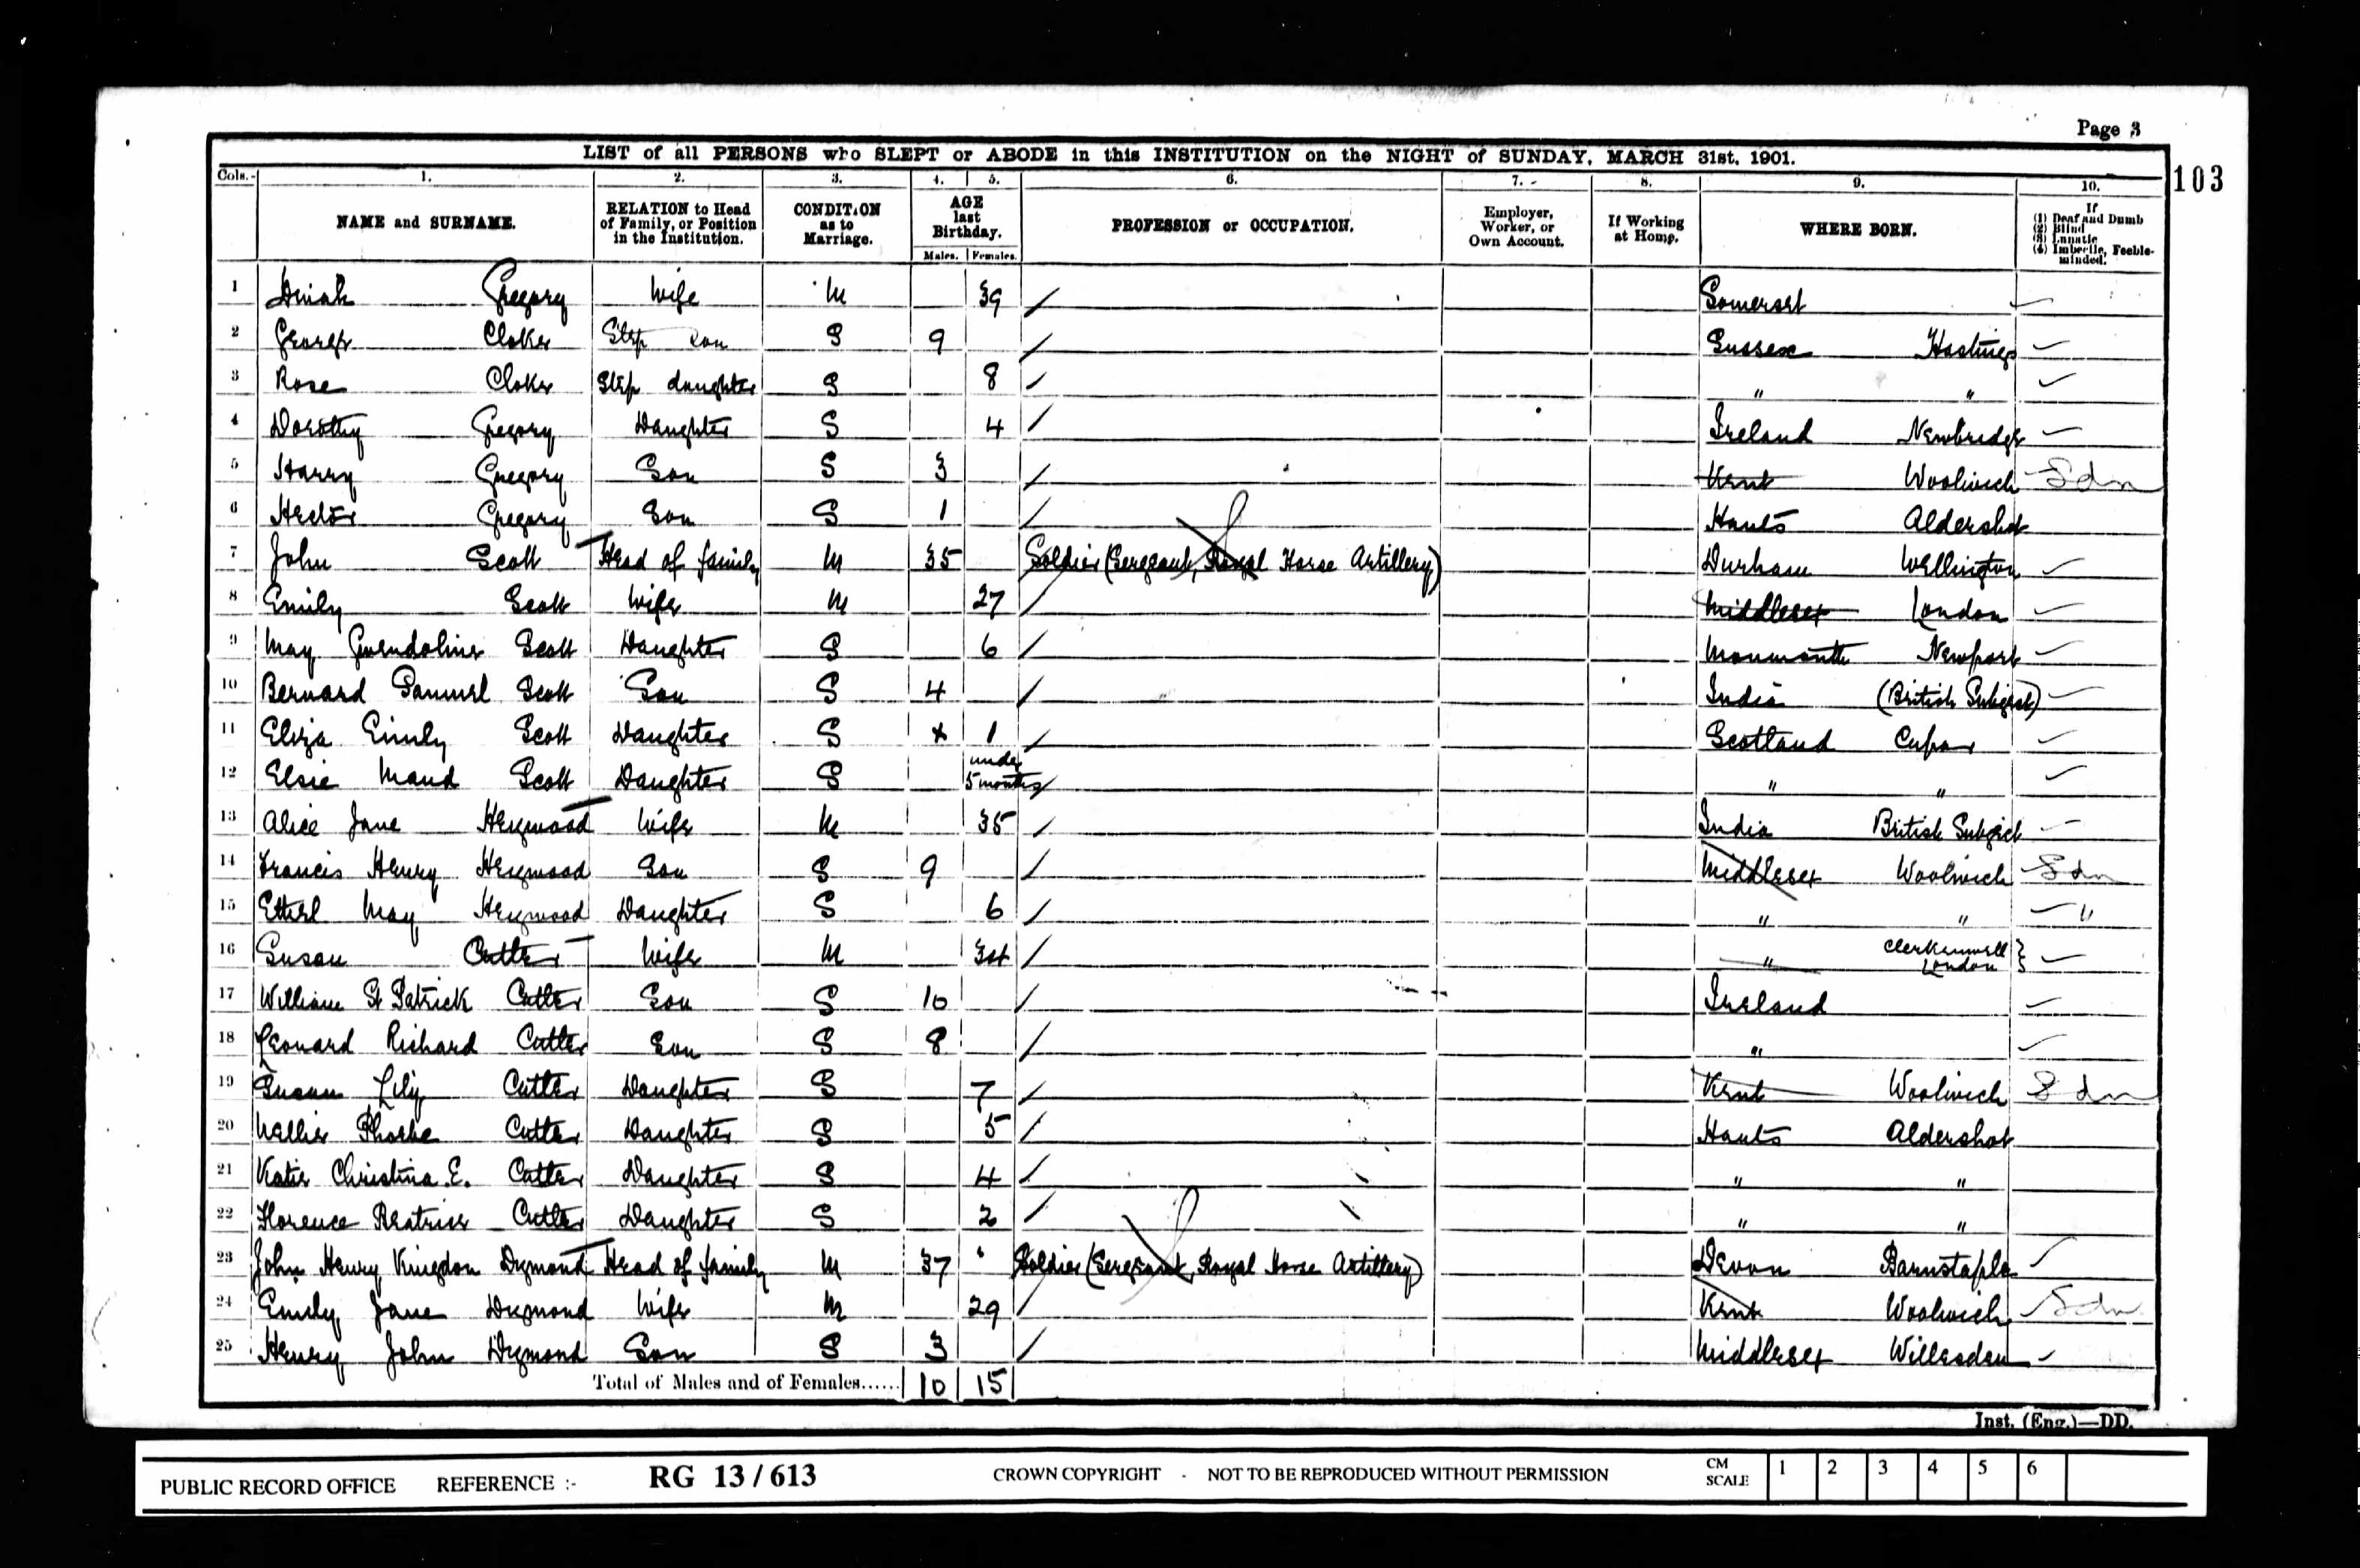 Page 3
LIST of all PERSONS who SLEPT or ABODE in this INSTITUTION on the NIGHT of SUNDAY, MARCH 31st, 1901.
103
Cols. 1. 2. 3. 4. 5. 6. 7. 8. 9. 10.
NAME and SURNAME. RELATION to Head of Family, or Position in the Institution. CONDITION as to Marriage. AGE last Birthday. Males. Females. PROFESSION or OCCUPATION. Employer, Worker, or Own Account. If Working at Home. WHERE BORN. If (1) Deaf and Dumb (2) Blind (3) Lunatic (4) Imbecile, Feeble-minded.
1 Dinah Gregory Wife M 39 Somerset
2 George Cloker Step son S 9 Sussex Hastings
3 Rose Cloker Step daughter S 8 " "
4 Dorothy Gregory Daughter S 4 Ireland Newbridge
5 Harry Gregory Son S 3 Kent Woolwich
6 Hector Gregory Son S 1 Hants Aldershot
7 John Scott Head of family M 35 Soldier (Sergeant, Royal Horse Artillery) Durham Wellington
8 Emily Scott Wife M 27 Middlesex London
9 May Gwendoline Scott Daughter S 6 Monmouth Newport
10 Bernard Samuel Scott Son S 4 India (British Subject)
11 Eliza Emily Scott Daughter S x 1 Scotland Cupar
12 Elsie Maud Scott Daughter S under 5 months " "
13 Alice Jane Heywood Wife M 35 India British Subject
14 Francis Henry Heywood Son S 9 Middlesex Woolwich
15 Ethel May Heywood Daughter S 6 " " "
16 Susan Cutler Wife M 34 " Clerkenwell London
17 William St Patrick Cutler Son S 10 Ireland
18 Leonard Richard Cutler Son S 8 "
19 Susan Lily Cutler Daughter S 7 Kent Woolwich
20 Nellie Phoebe Cutler Daughter S 5 Hants Aldershot
21 Katie Christina E. Cutler Daughter S 4 " "
22 Florence Beatrice Cutler Daughter S 2 " "
23 John Henry Kingdon Dymond Head of family M 37 Soldier (Sergeant, Royal Horse Artillery) Devon Barnstaple
24 Emily Jane Dymond Wife M 29 Kent Woolwich
25 Henry John Dymond Son S 3 Middlesex Willesden
Total of Males and of Females...... 10 15
Inst. (Eng.)—DD.
PUBLIC RECORD OFFICE REFERENCE :- RG 13 / 613 CROWN COPYRIGHT - NOT TO BE REPRODUCED WITHOUT PERMISSION CM SCALE 1 2 3 4 5 6